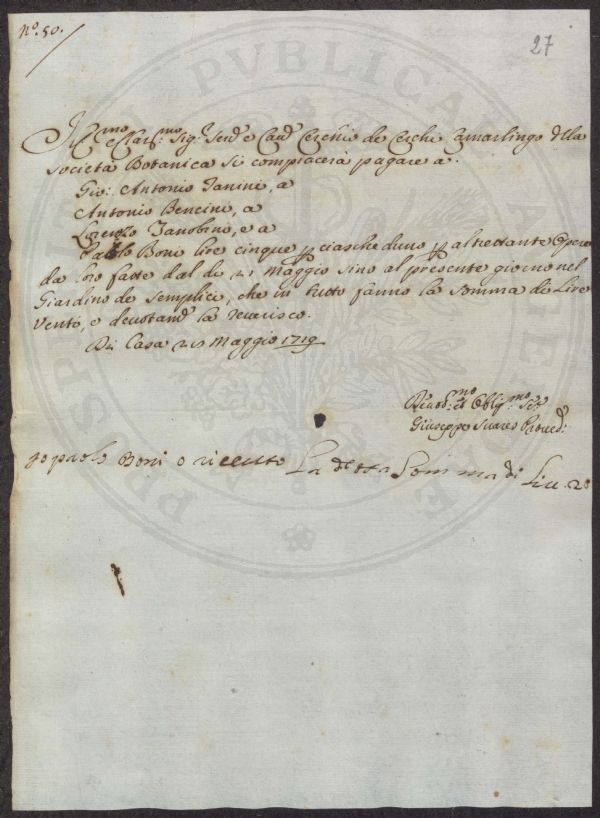 N.º 50.
27
Ill.mo e Clar.mo Sig.r Ser.e e Cau.e Cerchio de Cerchi Camarlingo della
Società Botanica si compiacerà pagare a.
Gio: Antonio Janini, a
Antonio Bencini, a
Lorenzo Zanobini, e a
Paolo Boni lire cinque p ciascheduno p altrettante Opere
da loro fatte dal di 21 Maggio sino al presente giorno nel
Giardino de Semplici, che in tutto fanno la somma di Lire
Venti, e deuotam.e la reverisco.
Di Casa Maggio 1719
Deuot.mo et Oblig.mo Ser.
Giuseppe Suares Proued.
Jo paolo Boni o riceuto La detta Somma di Lire 20